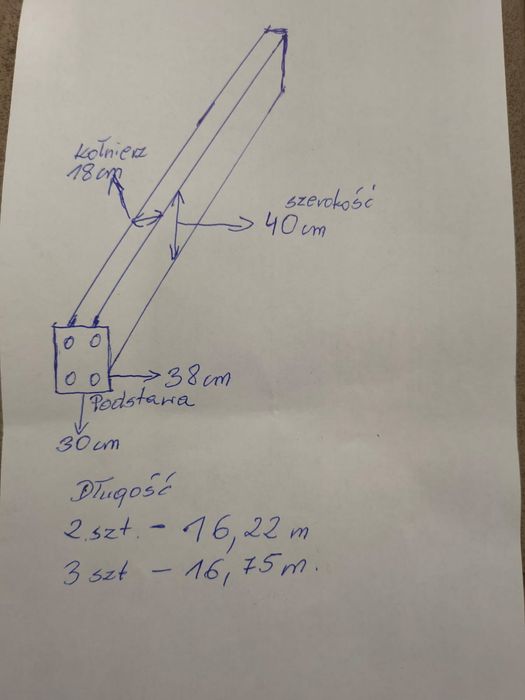 kołnierz
18cm
szerokość
40cm
38cm
Podstawa
30cm
Długość
2.szt. - 16,22 m
3 szt - 16,75m.